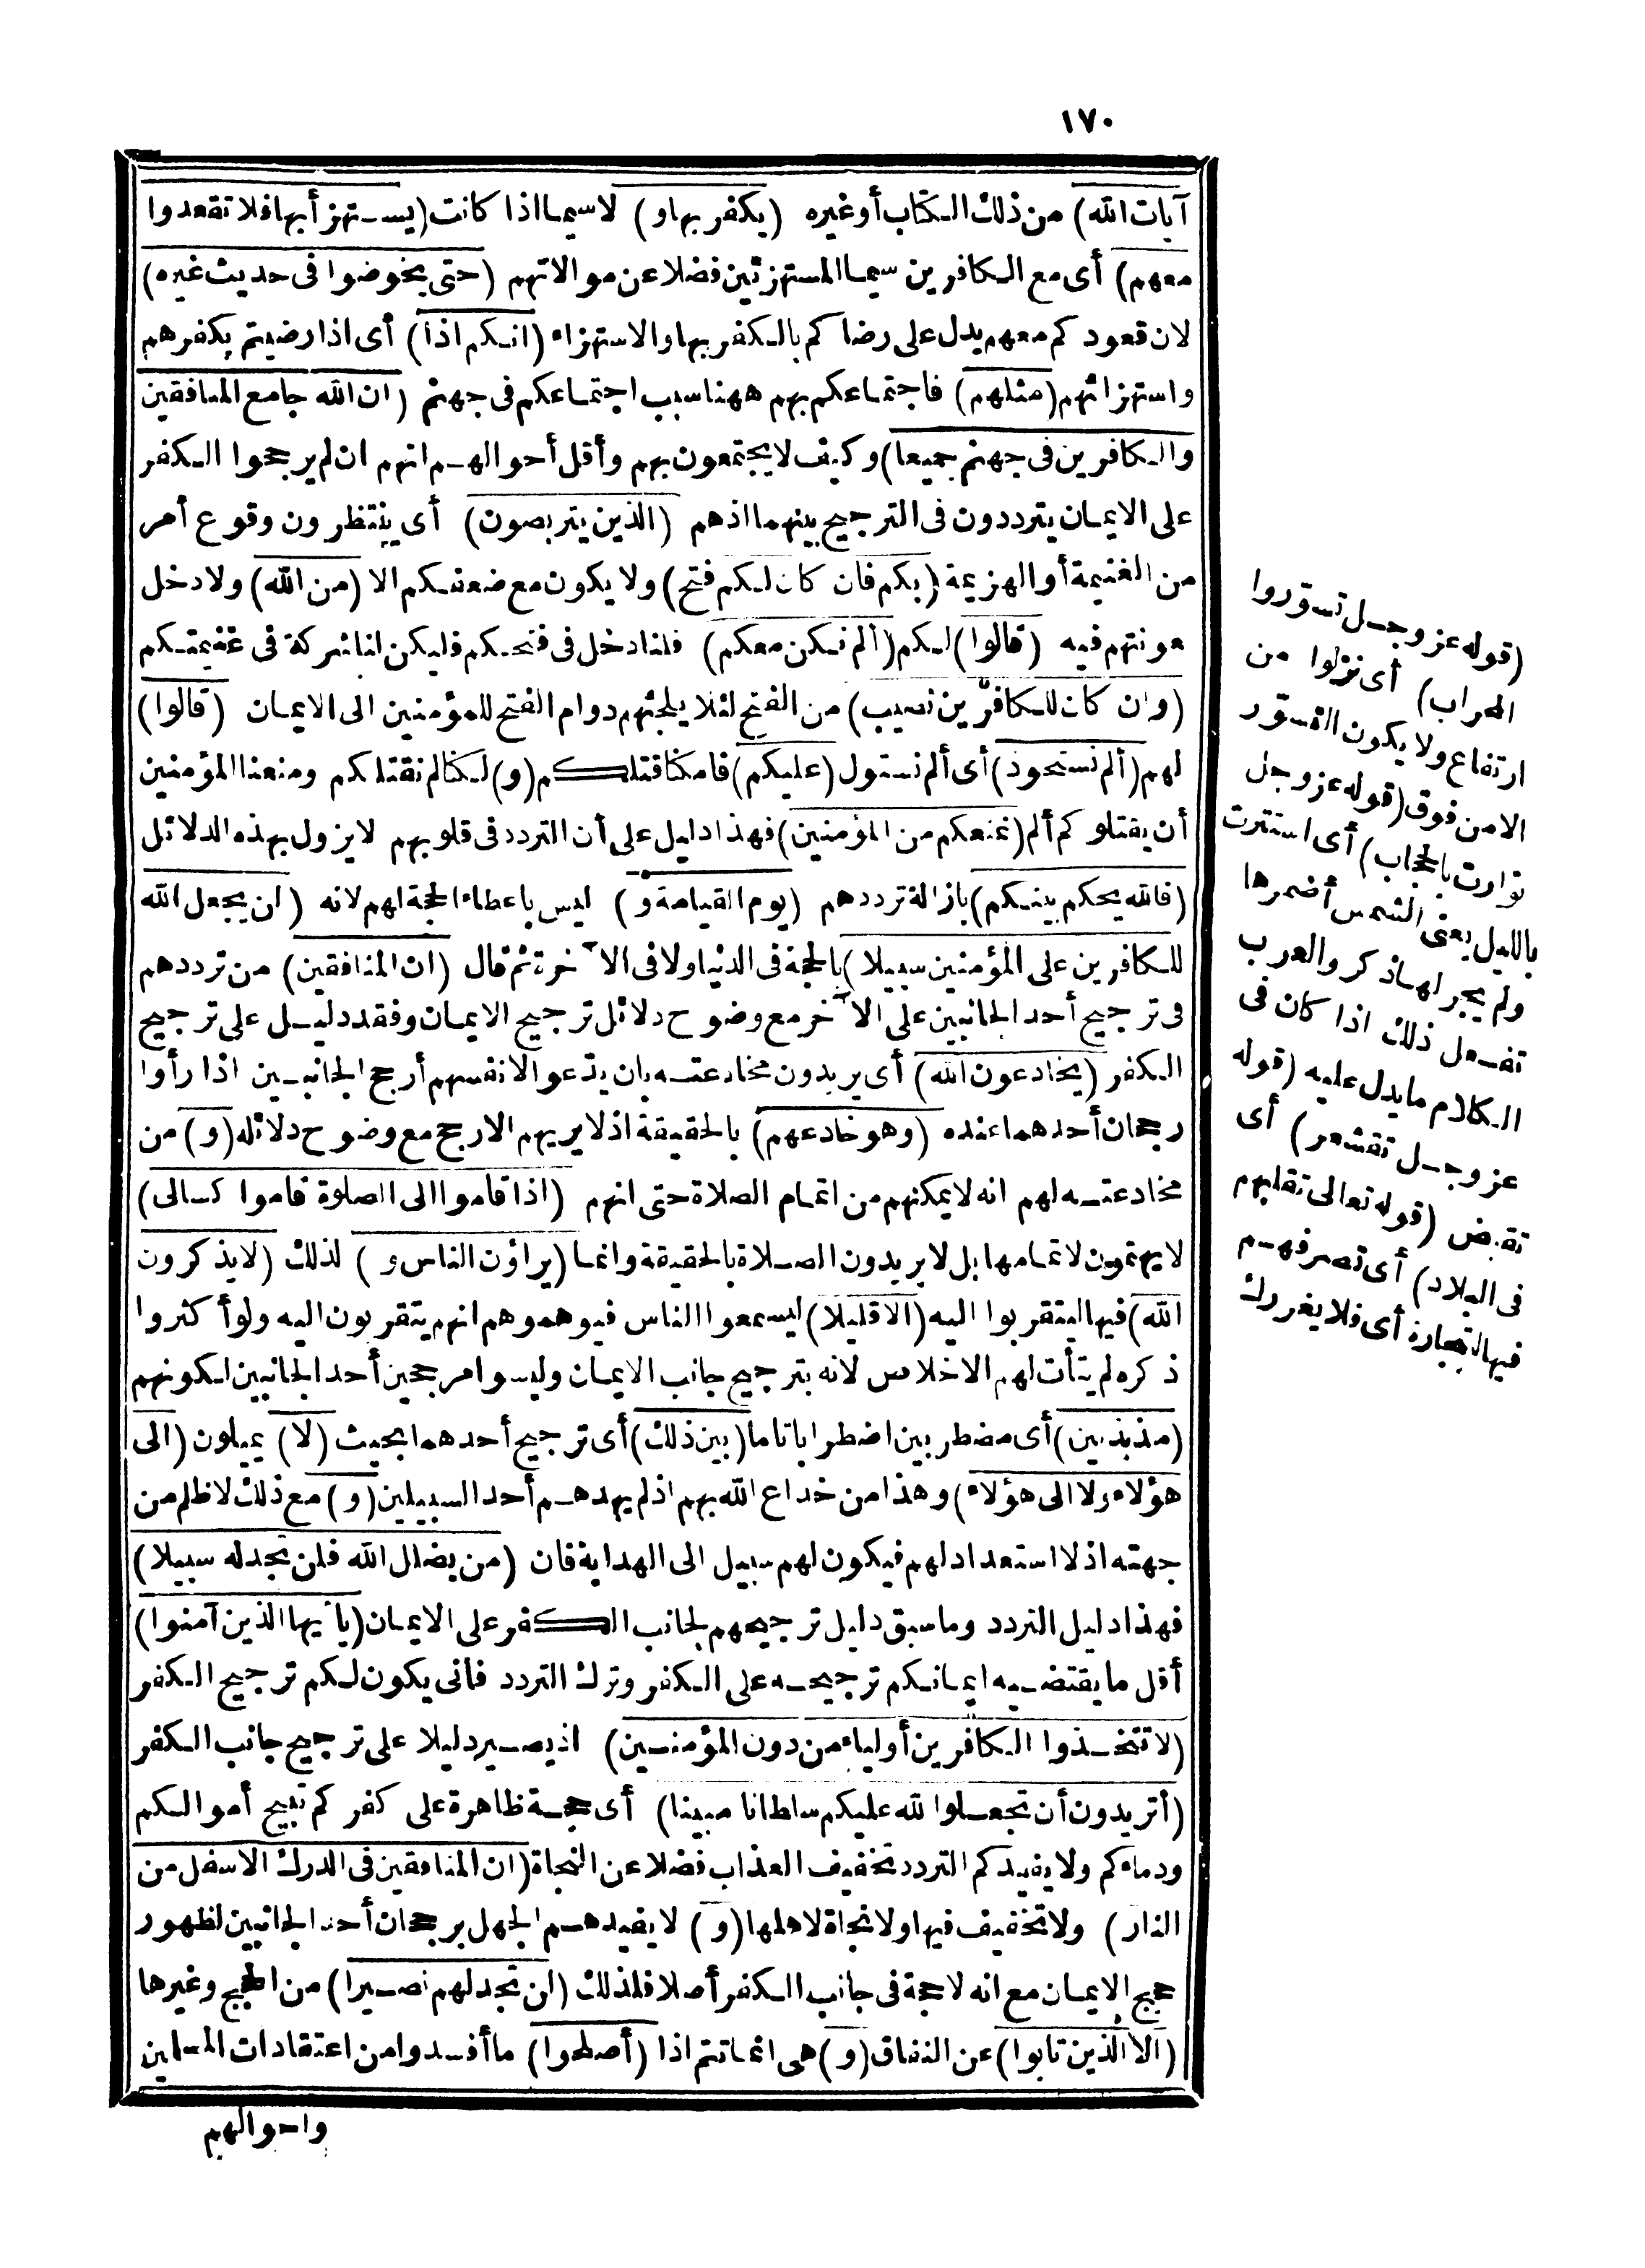 ١٧٠
آيات الله) من ذلك الكتاب أو غيره (يكفر بها و) لا سيما اذا كانت (يستهزأ بها فلا تقعدوا
معهم) أى مع الكافرين سيما المستهزئين فضلا عن موالاتهم (حتى يخوضوا فى حديث غيره)
لان قعودكم معهم يدل على رضاكم بالكفر بها والاستهزاء (انكم اذا) أى اذا رضيتم بكفرهم
واستهزائهم (مثلهم) فاجتماعكم بهم ههنا سبب اجتماعكم فى جهنم (ان الله جامع المنافقين
والكافرين فى جهنم جميعا) وكيف لا يجتمعون بهم وأقل أحوالهم انهم ان لم يرجحوا الكفر
على الايمان يترددون فى الترجيح بينهما اذهم (الذين يتربصون) أى ينتظرون وقوع أمر
من الغنيمة أو الهزيمة (بكم فان كان لكم فتح) ولا يكون مع ضعفكم الا (من الله) ولا دخل
عونتهم فيه (قالوا) لكم (ألم نكن معكم) فلنا دخل فى فتحكم فليكن لنا شركة فى غنيمتكم
(وان كان للكافرين نصيب) من الفتح لئلا يلجئهم دوام الفتح للمؤمنين الى الايمان (قالوا)
لهم (ألم نستحوذ) أى ألم نستول (عليكم) فامكنا قتلكم (و) لكنا لم نقتلكم ومنعنا المؤمنين
أن يقتلوكم ألم (نمنعكم من المؤمنين) فهذا دليل على أن التردد فى قلوبهم لا يزول بهذه الدلائل
(فالله يحكم بينكم) بازالة ترددهم (يوم القيامة و) ليس باعطاء الحجة لهم لانه (لن يجعل الله
للكافرين على المؤمنين سبيلا) بالحجة فى الدنيا ولا فى الآخرة ثم قال (ان المنافقين) من ترددهم
فى ترجيح أحد الجانبين على الآخر مع وضوح دلائل ترجيح الايمان وفقد دليل على ترجيح
الكفر (يخادعون الله) أى يريدون مخادعته بان يدعوا لانفسهم أرجح الجانبين اذا رأوا
رجحان أحدهما عنده (وهو خادعهم) بالحقيقة اذ لا يريهم الارجح مع وضوح دلائله (و) من
مخادعته لهم انه لا يمكنهم من اتمام الصلاة حتى انهم (اذا قاموا الى الصلوة قاموا كسالى)
لا يهتمون لاتمامها بل لا يريدون الصلاة بالحقيقة وانما (يراؤن الناس و) لذلك (لا يذكرون
الله) فيها ليتقربوا اليه (الا قليلا) ليسمعوا الناس فيوهموهم انهم يتقربون اليه ولو أكثروا
ذكره لم يتأت لهم الاخلاص لانه بترجيح جانب الايمان وليسوا مرجحين أحد الجانبين لكونهم
(مذبذبين) أى مضطربين اضطرابا تاما (بين ذلك) أى ترجيح أحدهما بحيث (لا) يميلون (الى
هؤلاء ولا الى هؤلاء) وهذا من خداع الله بهم اذ لم يهدهم أحد السبيلين (و) مع ذلك لا ظلم من
جهته اذ لا استعداد لهم فيكون لهم سبيل الى الهداية فان (من يضلل الله فلن تجد له سبيلا)
فهذا دليل التردد وما سبق دليل ترجيحهم لجانب الكفر على الايمان (يا أيها الذين آمنوا)
أقل ما يقتضيه ايمانكم ترجيحه على الكفر وترك التردد فأنى يكون لكم ترجيح الكفر
(لا تتخذوا الكافرين أولياء من دون المؤمنين) اذ يصير دليلا على ترجيح جانب الكفر
(أتريدون أن تجعلوا لله عليكم سلطانا مبينا) أى حجة ظاهرة على كفركم تبيح أموالكم
ودماءكم ولا يفيدكم التردد تخفيف العذاب فضلا عن النجاة (ان المنافقين فى الدرك الاسفل من
النار) ولا تخفيف فيها ولا نجاة لاهلها (و) لا يفيدهم الجهل برجحان أحد الجانبين لظهور
حجج الايمان مع انه لا حجة فى جانب الكفر أصلا فلذلك (لن تجد لهم نصيرا) من الحجج وغيرها
(الا الذين تابوا) عن النفاق (و) هى انما تتم اذا (أصلحوا) ما أفسدوا من اعتقادات المسلمين
واحوالهم
(قوله عز وجل تسوّروا
المحراب) أى نزلوا من
ارتفاع ولا يكون التسوّر
الا من فوق (قوله عز وجل
توارت بالحجاب) أى استترت
بالليل يعنى الشمس أضمرها
ولم يجر لها ذكر والعرب
تفعل ذلك اذا كان فى
الكلام ما يدل عليه (قوله
عز وجل تقشعر) أى
تقبض (قوله تعالى تقلبهم
فى البلاد) أى تصرفهم
فيها للتجارة أى فلا يغررك